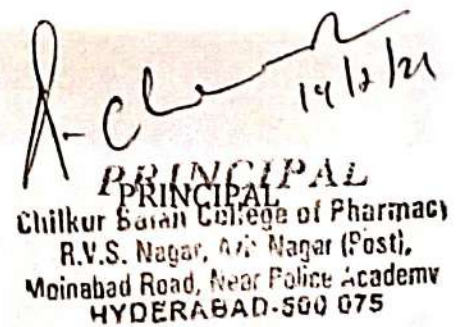 19/2/21
PRINCIPAL
PRINCIPAL
Chilkur Balaji College of Pharmacy
R.V.S. Nagar, Aziz Nagar (Post),
Moinabad Road, Near Police Academy
HYDERABAD-500 075